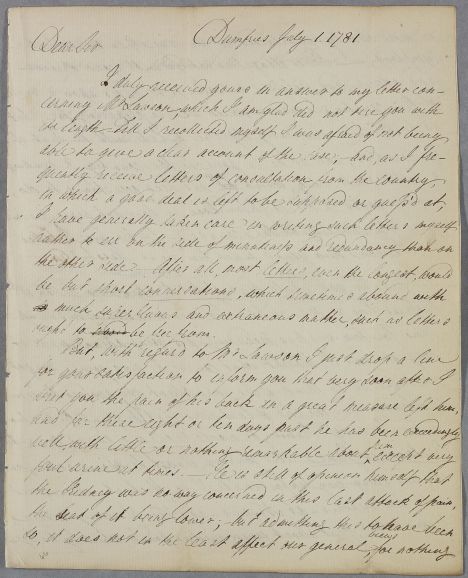 Dear Sir Dumfries July 1. 1781
I duly received yours in answer to my letter con-
cerning Mr Lawson, which I am glad did not tire you with
its length. Till I recollected myself I was afraid of not being
able to give a clear account of the case; and, as I fre-
quently receive letters of consultation from the country,
in which a good deal is left to be supposed or guess'd at,
I have generally taken care in writing such letters myself
rather to err on the side of minuteness and redundancy than on
the other side. After all, most letters, even the longest, would
be but short conversations, which sometimes abound with
much superfluous and extraneous matter, such as letters
ought to be free from.
But, with regard to Mr Lawson I just drop a line
for your satisfaction to inform you that very soon after I
sent you the pain of his back in a great measure left him,
and for these eight or ten days past he has been exceedingly
well, with little or nothing remarkable about him except very
foul urine at times. He is still of opinion himself that
the Kidney was no way concerned in this last attack of pain,
the seat of it being lower; but admitting this to have been
so, it does not in the least affect our general, for nothing